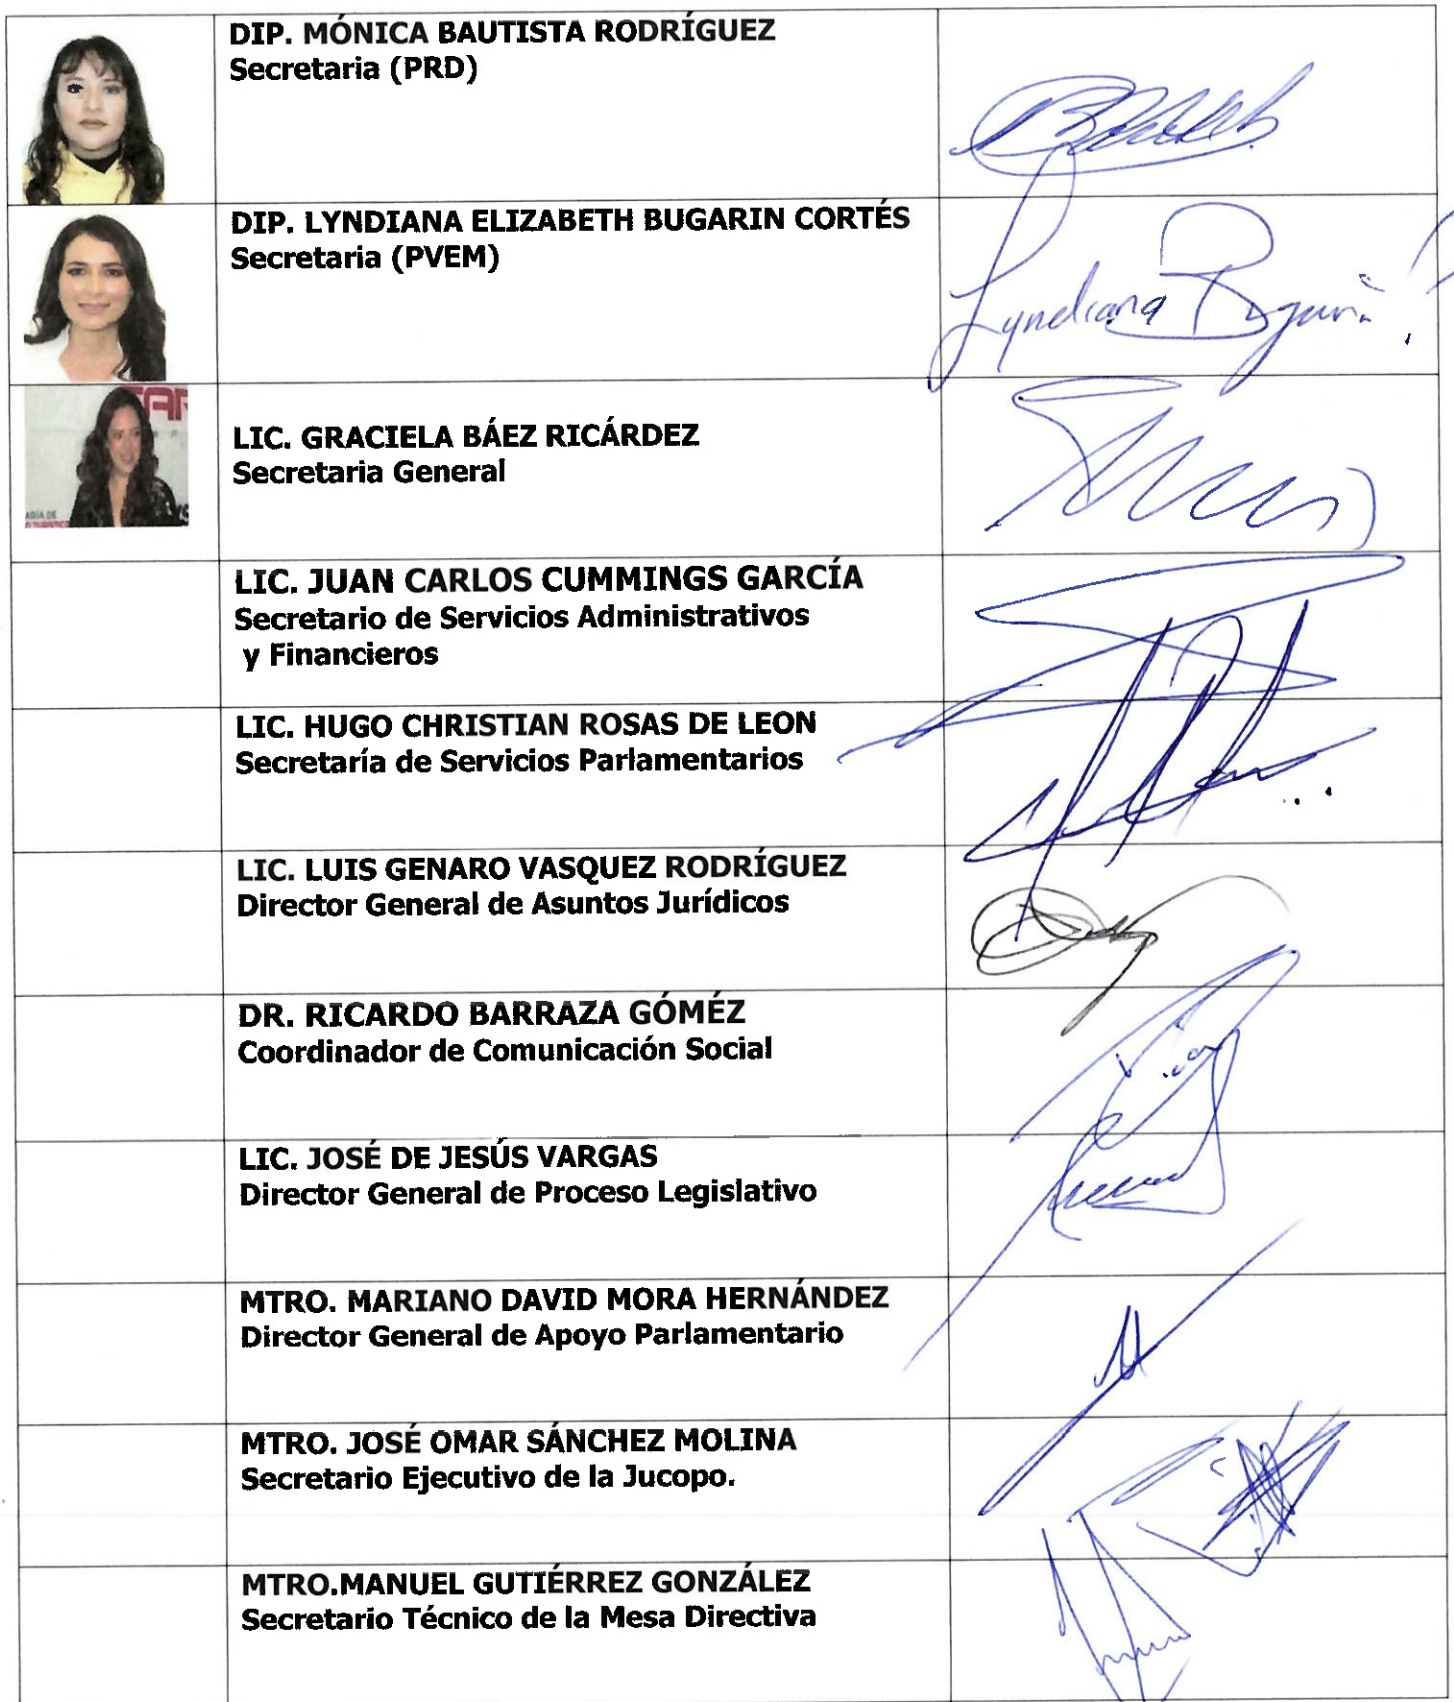 DIP. MÓNICA BAUTISTA RODRÍGUEZ
Secretaria (PRD)
DIP. LYNDIANA ELIZABETH BUGARIN CORTÉS
Secretaria (PVEM)
Lyndiana Bugarin
LIC. GRACIELA BÁEZ RICÁRDEZ
Secretaria General
LIC. JUAN CARLOS CUMMINGS GARCÍA
Secretario de Servicios Administrativos
y Financieros
LIC. HUGO CHRISTIAN ROSAS DE LEON
Secretaría de Servicios Parlamentarios
LIC. LUIS GENARO VASQUEZ RODRÍGUEZ
Director General de Asuntos Jurídicos
DR. RICARDO BARRAZA GÓMÉZ
Coordinador de Comunicación Social
LIC. JOSÉ DE JESÚS VARGAS
Director General de Proceso Legislativo
MTRO. MARIANO DAVID MORA HERNÁNDEZ
Director General de Apoyo Parlamentario
MTRO. JOSÉ OMAR SÁNCHEZ MOLINA
Secretario Ejecutivo de la Jucopo.
MTRO.MANUEL GUTIÉRREZ GONZÁLEZ
Secretario Técnico de la Mesa Directiva